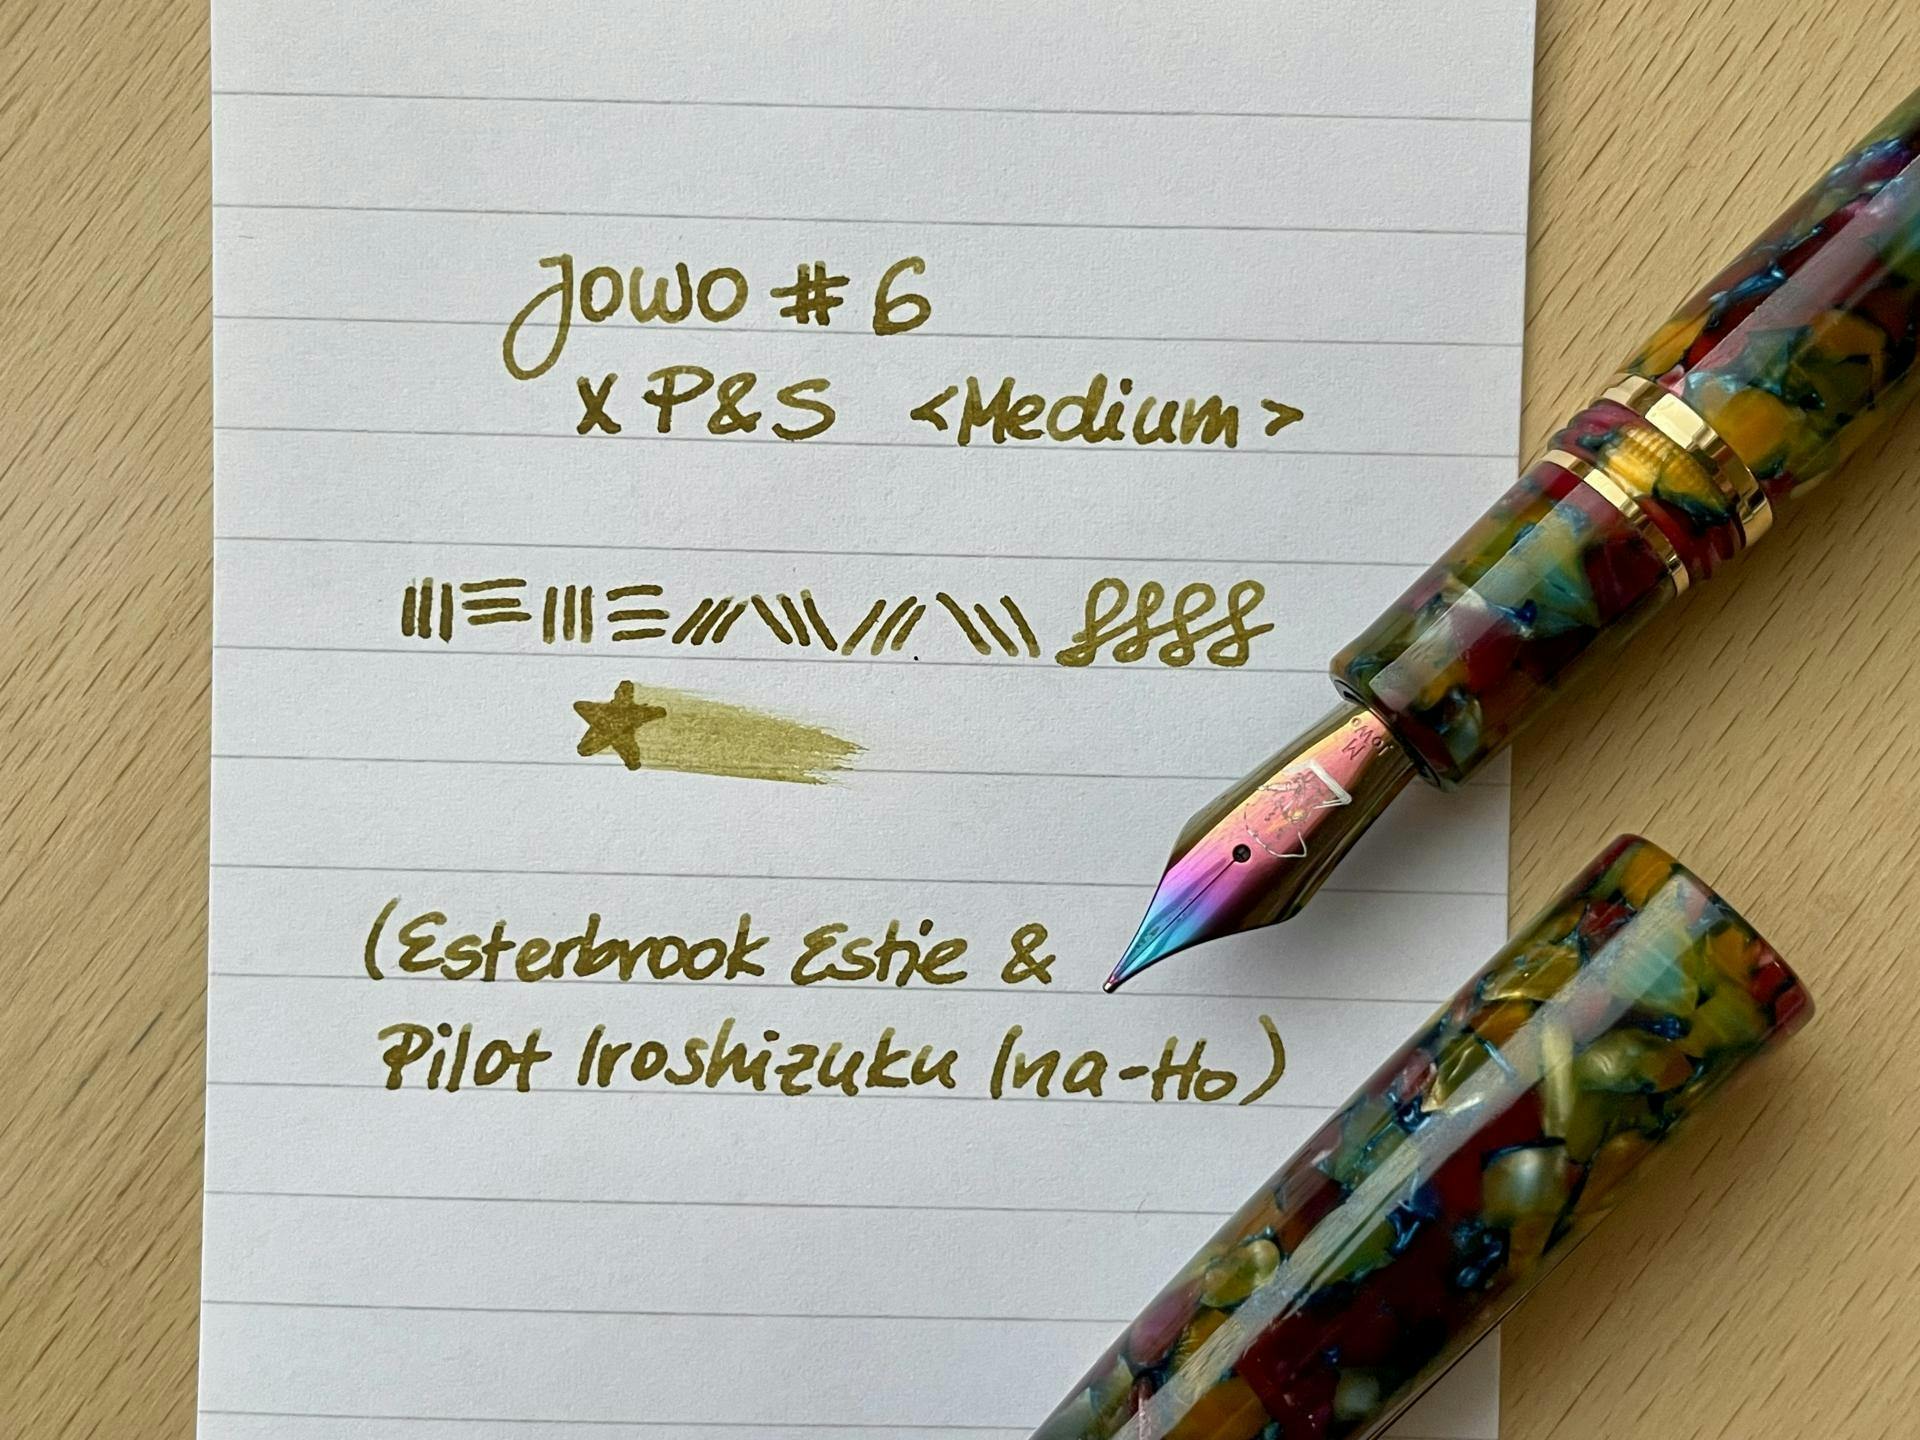 Jowo # 6
x P&S <Medium>
(Esterbrook Estie &
Pilot Iroshizuku Ina-Ho)
M
JoWo